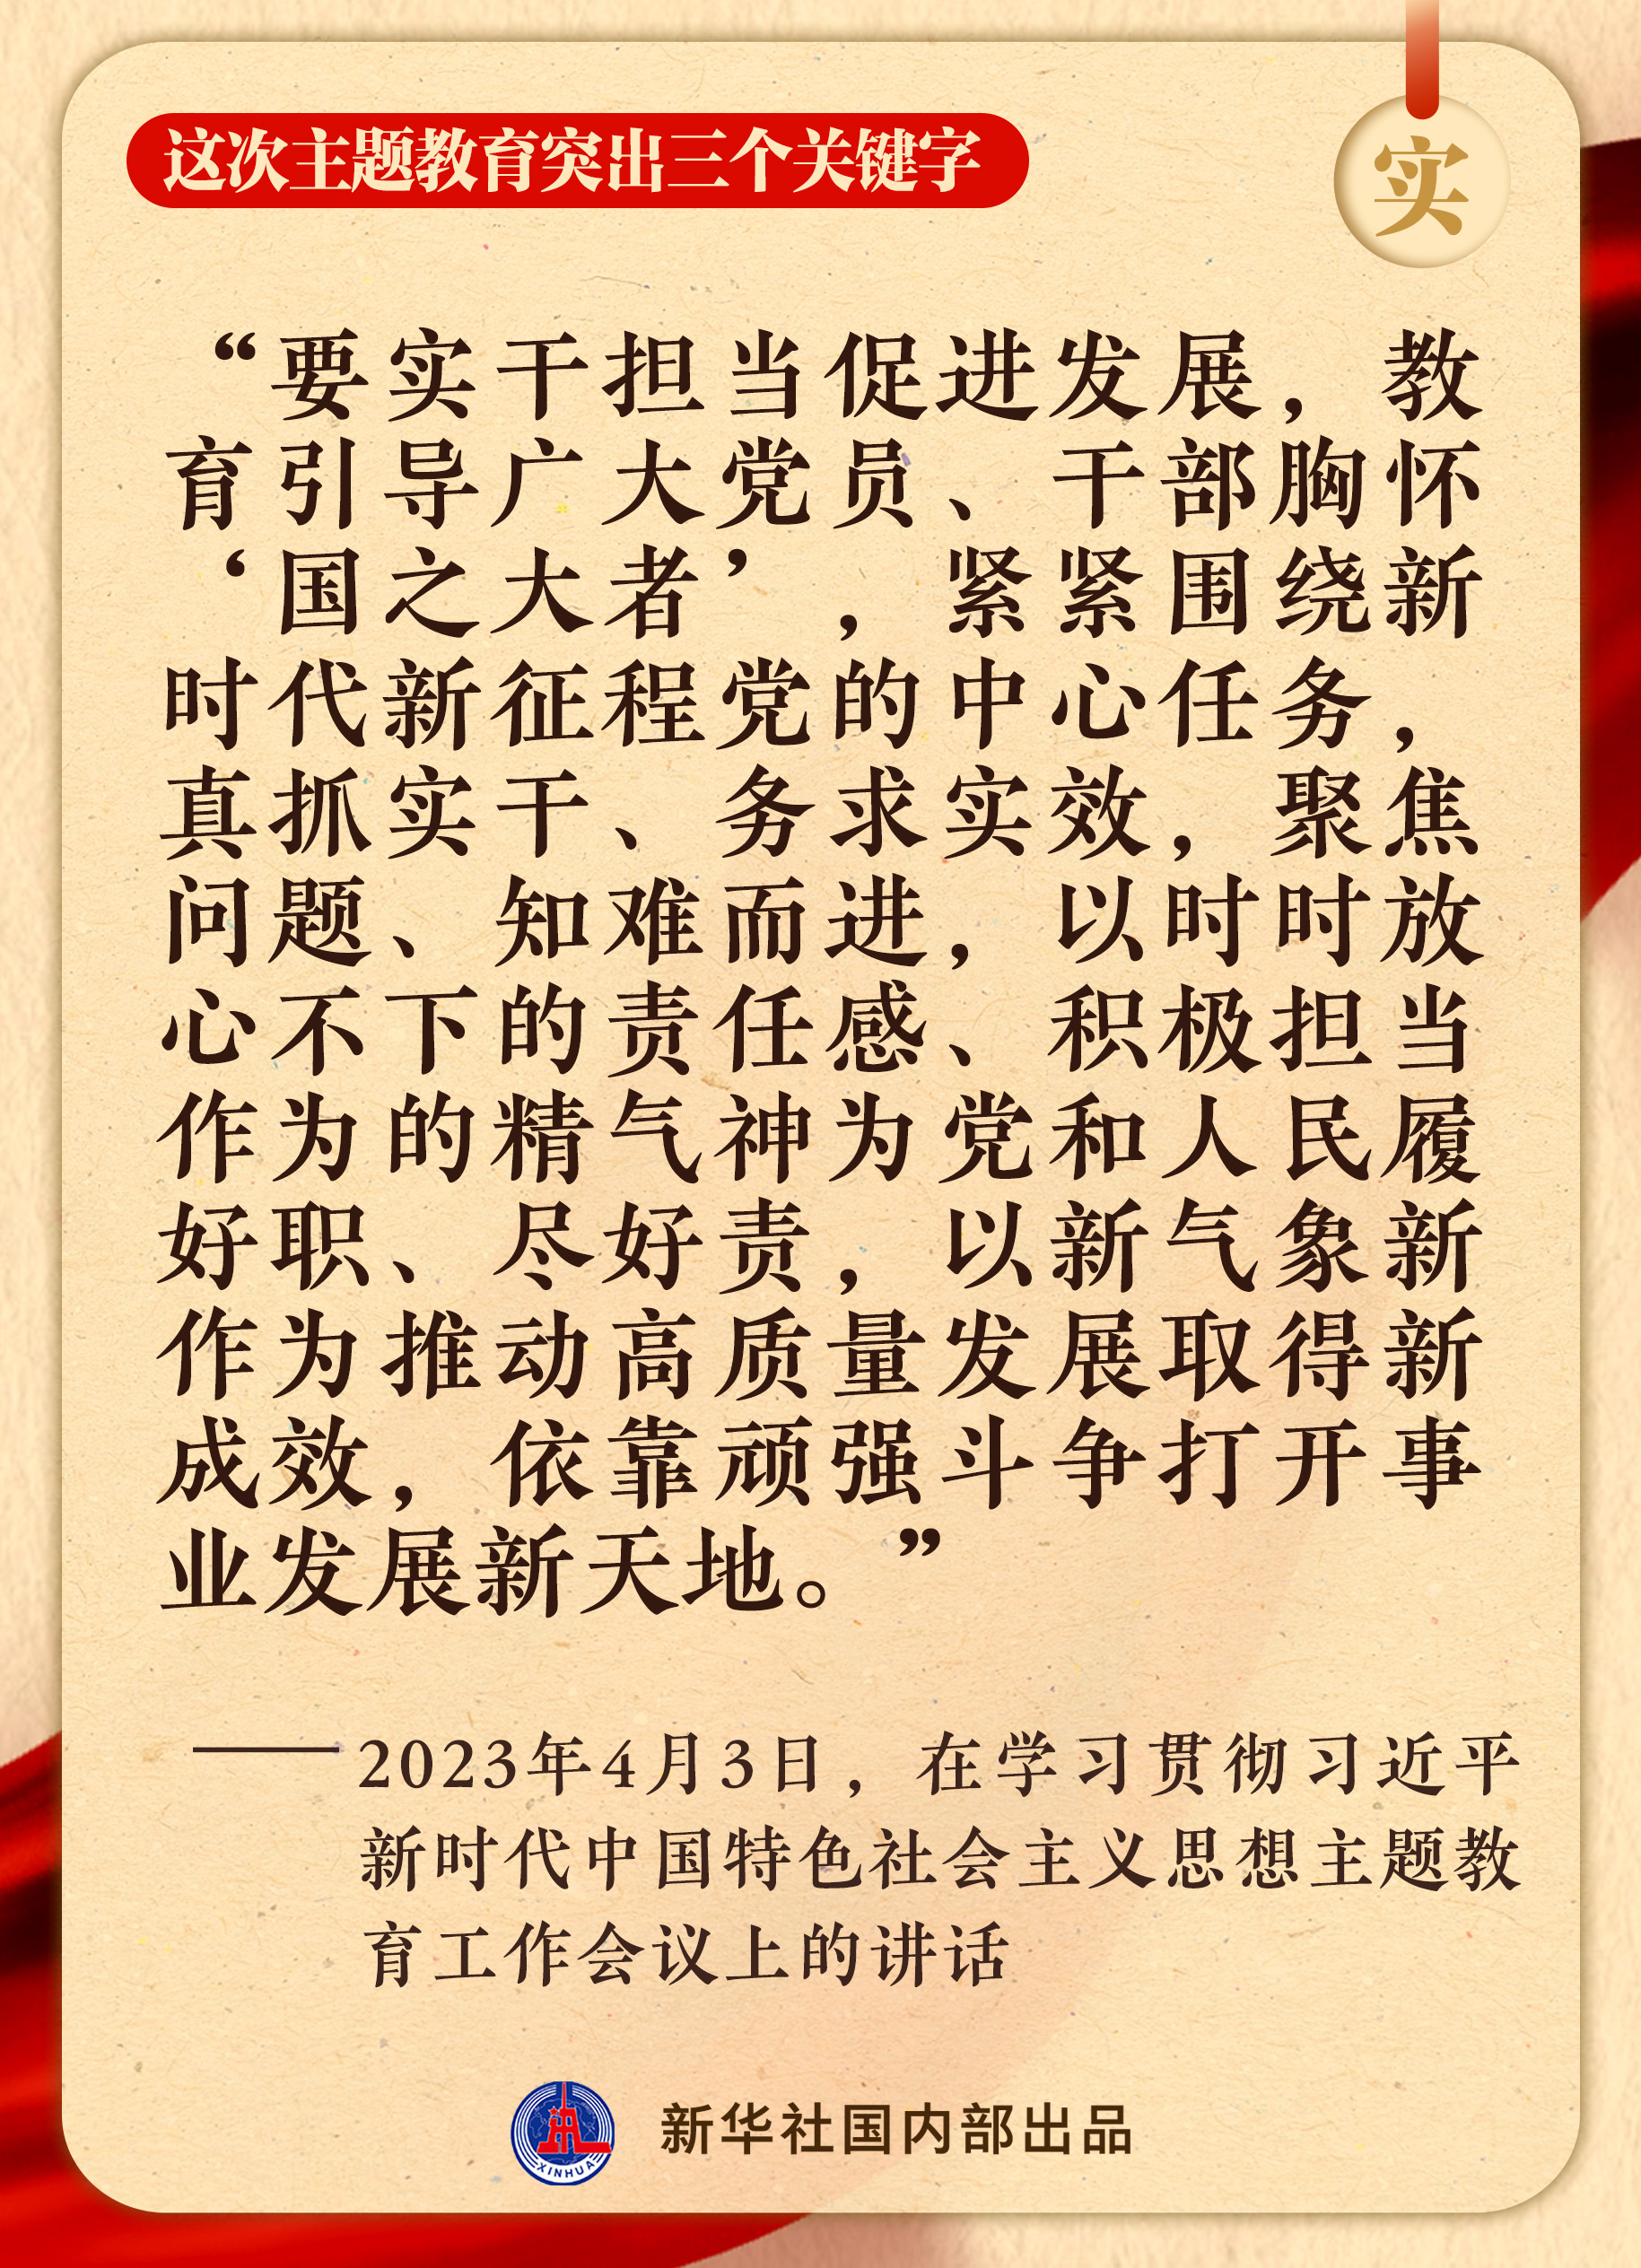 这次主题教育突出三个关键字
实
“要实干担当促进发展，教
育引导广大党员、干部胸怀
‘国之大者’，紧紧围绕新
时代新征程党的中心任务，
真抓实干、务求实效，聚焦
问题、知难而进，以时时放
心不下的责任感、积极担当
作为的精气神为党和人民履
好职、尽好责，以新气象新
作为推动高质量发展取得新
成效，依靠顽强斗争打开事
业发展新天地。”
——2023年4月3日，在学习贯彻习近平
新时代中国特色社会主义思想主题教
育工作会议上的讲话
XINHUA
新华社国内部出品